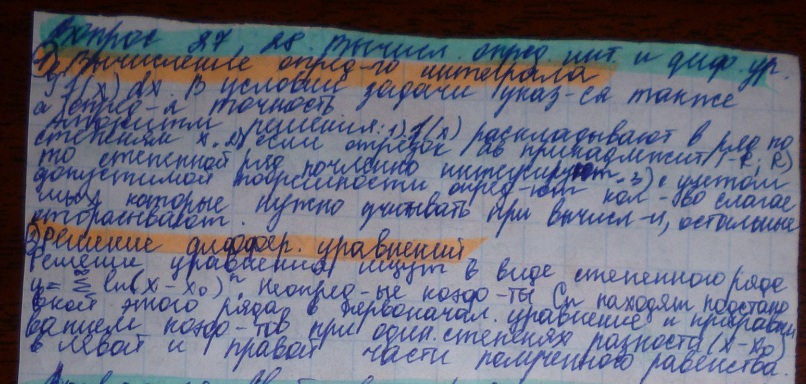 Вопрос 27 28. Вычисл. опред инт. и диф. ур.
1) Вычисление опред-го интеграла
∫ f(x) dx В условии задачи указ-ся также
a (опред-я точность
Алгоритм решения: 1) f(x) раскладывают в ряд по
степеням x. 2) если отрезок ab принадлежит (-R; R)
то степенной ряд почленно интегрируют 3) с учетом
допустимой погрешности опред-ют кол-во слагае
мых которые нужно учитывать при вычисл-и, остальные
отбрасывают.
2) Решение диффер. уравнений
Решение уравнения ищут в виде степенного ряда
y = Σ Cn(x-x₀)ⁿ, неопред-ые коэфф-ты Cn находят подстано
вкой этого ряда в первоначал. уравнение и приравни
ванием коэфф-тов при один. степенях разности (x-x₀)
в левой и правой части полученного равенства.